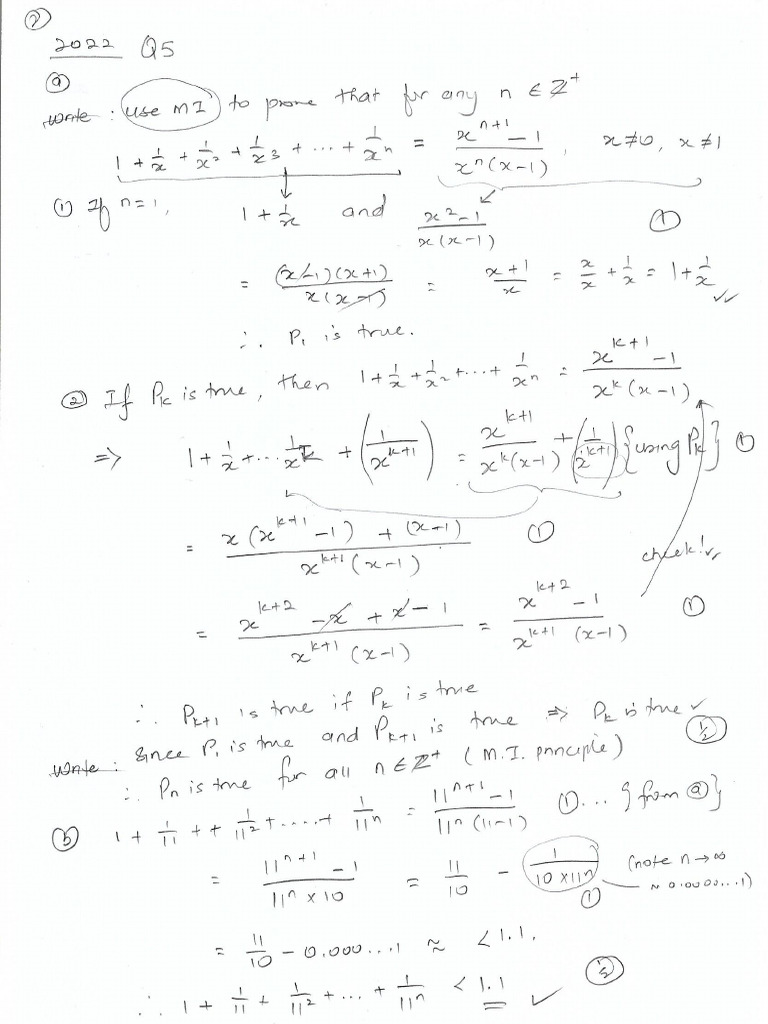 ②
2022 Q5
ⓐ
write : use MI to prove that for any n ∈ Z⁺
1 + 1/x + 1/x² + 1/x³ + ... + 1/xⁿ = (xⁿ⁺¹ - 1)/(xⁿ(x-1)), x ≠ 0, x ≠ 1
① If n=1, 1 + 1/x and (x² - 1)/(x(x-1)) ①
= (x-1)(x+1)/(x(x-1)) = (x+1)/x = x/x + 1/x = 1 + 1/x ✓✓
∴ P₁ is true.
② If Pₖ is true, then 1 + 1/x + 1/x² + ... + 1/xⁿ = (xᵏ⁺¹ - 1)/(xᵏ(x-1))
⇒ 1 + 1/x + ... 1/xᵏ + (1/xᵏ⁺¹) = xᵏ⁺¹/(xᵏ(x-1)) + (1/xᵏ⁺¹) {using Pₖ} ①
= (x(xᵏ⁺¹ - 1) + (x-1))/(xᵏ⁺¹(x-1)) ①
check! ✓✓
= (xᵏ⁺² - x + x - 1)/(xᵏ⁺¹(x-1)) = (xᵏ⁺² - 1)/(xᵏ⁺¹(x-1)) ①
∴ Pₖ₊₁ is true if Pₖ is true
write : Since P₁ is true and Pₖ₊₁ is true ⇒ Pₖ is true ✓ ½
∴ Pn is true for all n ∈ Z⁺ (M.I. principle)
ⓑ 1 + 1/11 + + 1/11² + ..... + 1/11ⁿ = (11ⁿ⁺¹ - 1)/(11ⁿ(11-1)) ① ... {from ⓐ}
= (11ⁿ⁺¹ - 1)/(11ⁿ × 10) = 11/10 - 1/(10 × 11ⁿ) ① (note n → ∞
≈ 0.0000...1)
= 11/10 - 0.000...1 ≈ < 1.1.
∴ 1 + 1/11 + 1/11² + ... + 1/11ⁿ < 1.1 ✓ ½